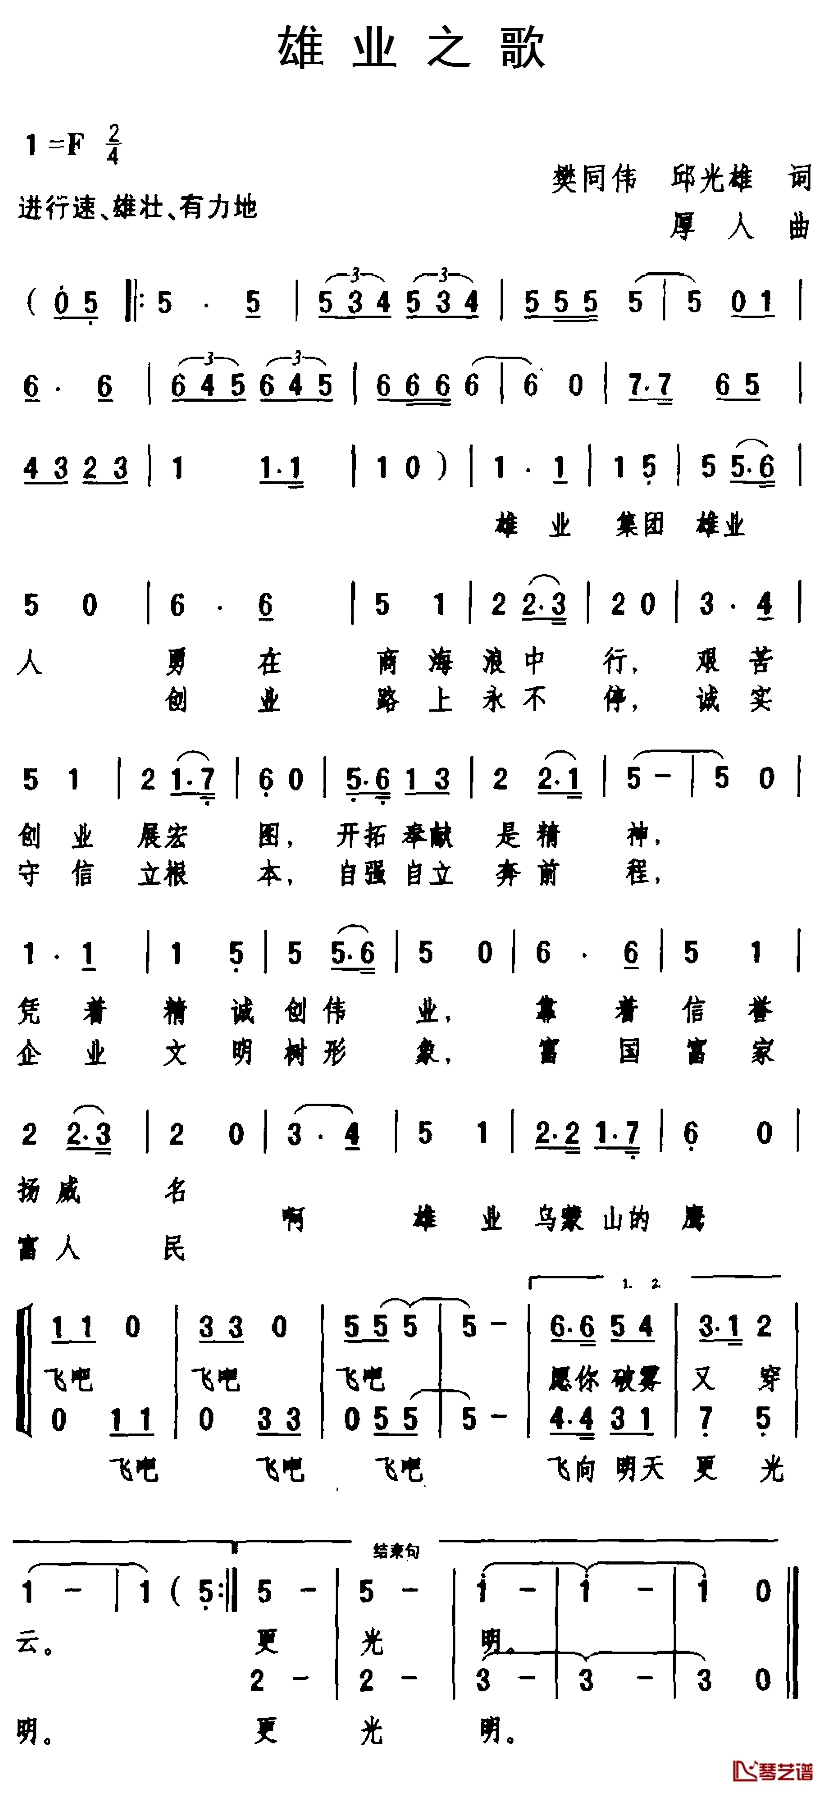 雄业之歌
1=F 2/4
樊同伟 邱光雄 词
进行速、雄壮、有力地
厚人 曲
( 0 5 ‖: 5 · 5 | 5 3 4 5 3 4 | 5 5 5 5 | 5 0 1 |
6 · 6 | 6 4 5 6 4 5 | 6 6 6 6 | 6 0 | 7·7 6 5 |
4 3 2 3 | 1 1·1 | 1 0 ) | 1 · 1 | 1 5 | 5 5·6 |
雄 业 集团 雄业
5 0 | 6 · 6 | 5 1 | 2 2·3 | 2 0 | 3 · 4 |
人 勇 在 商 海 浪中 行， 艰 苦
创 业 路 上 永不 停， 诚 实
5 1 | 2 1·7 | 6 0 | 5·6 1 3 | 2 2·1 | 5 - | 5 0 |
创 业 展宏 图， 开拓 奉献 是精 神，
守 信 立根 本， 自强 自立 奔前 程，
1 · 1 | 1 5 | 5 5·6 | 5 0 | 6 · 6 | 5 1 |
凭 着 精 诚 创伟 业， 靠 着 信 誉
企 业 文 明 树形 象， 富 国 富 家
2 2·3 | 2 0 | 3 · 4 | 5 1 | 2·2 1·7 | 6 0 |
扬威 名
啊 雄 业 乌蒙 山的 鹰
富人 民
1. 2.
1 1 0 | 3 3 0 | 5 5 5 | 5 - | 6·6 5 4 | 3·1 2 |
飞吧 飞吧 飞吧 愿你 破雾 又 穿
0 1 1 | 0 3 3 | 0 5 5 | 5 - | 4·4 3 1 | 7 5 |
飞吧 飞吧 飞吧 飞向 明天 更 光
结束句
1 - | 1 ( 5 :‖ 5 - | 5 - | 1 - | 1 - | 1 0 ‖
云。 更 光 明。
2 - | 2 - | 3 - | 3 - | 3 0 ‖
明。 更 光 明。
琴艺谱